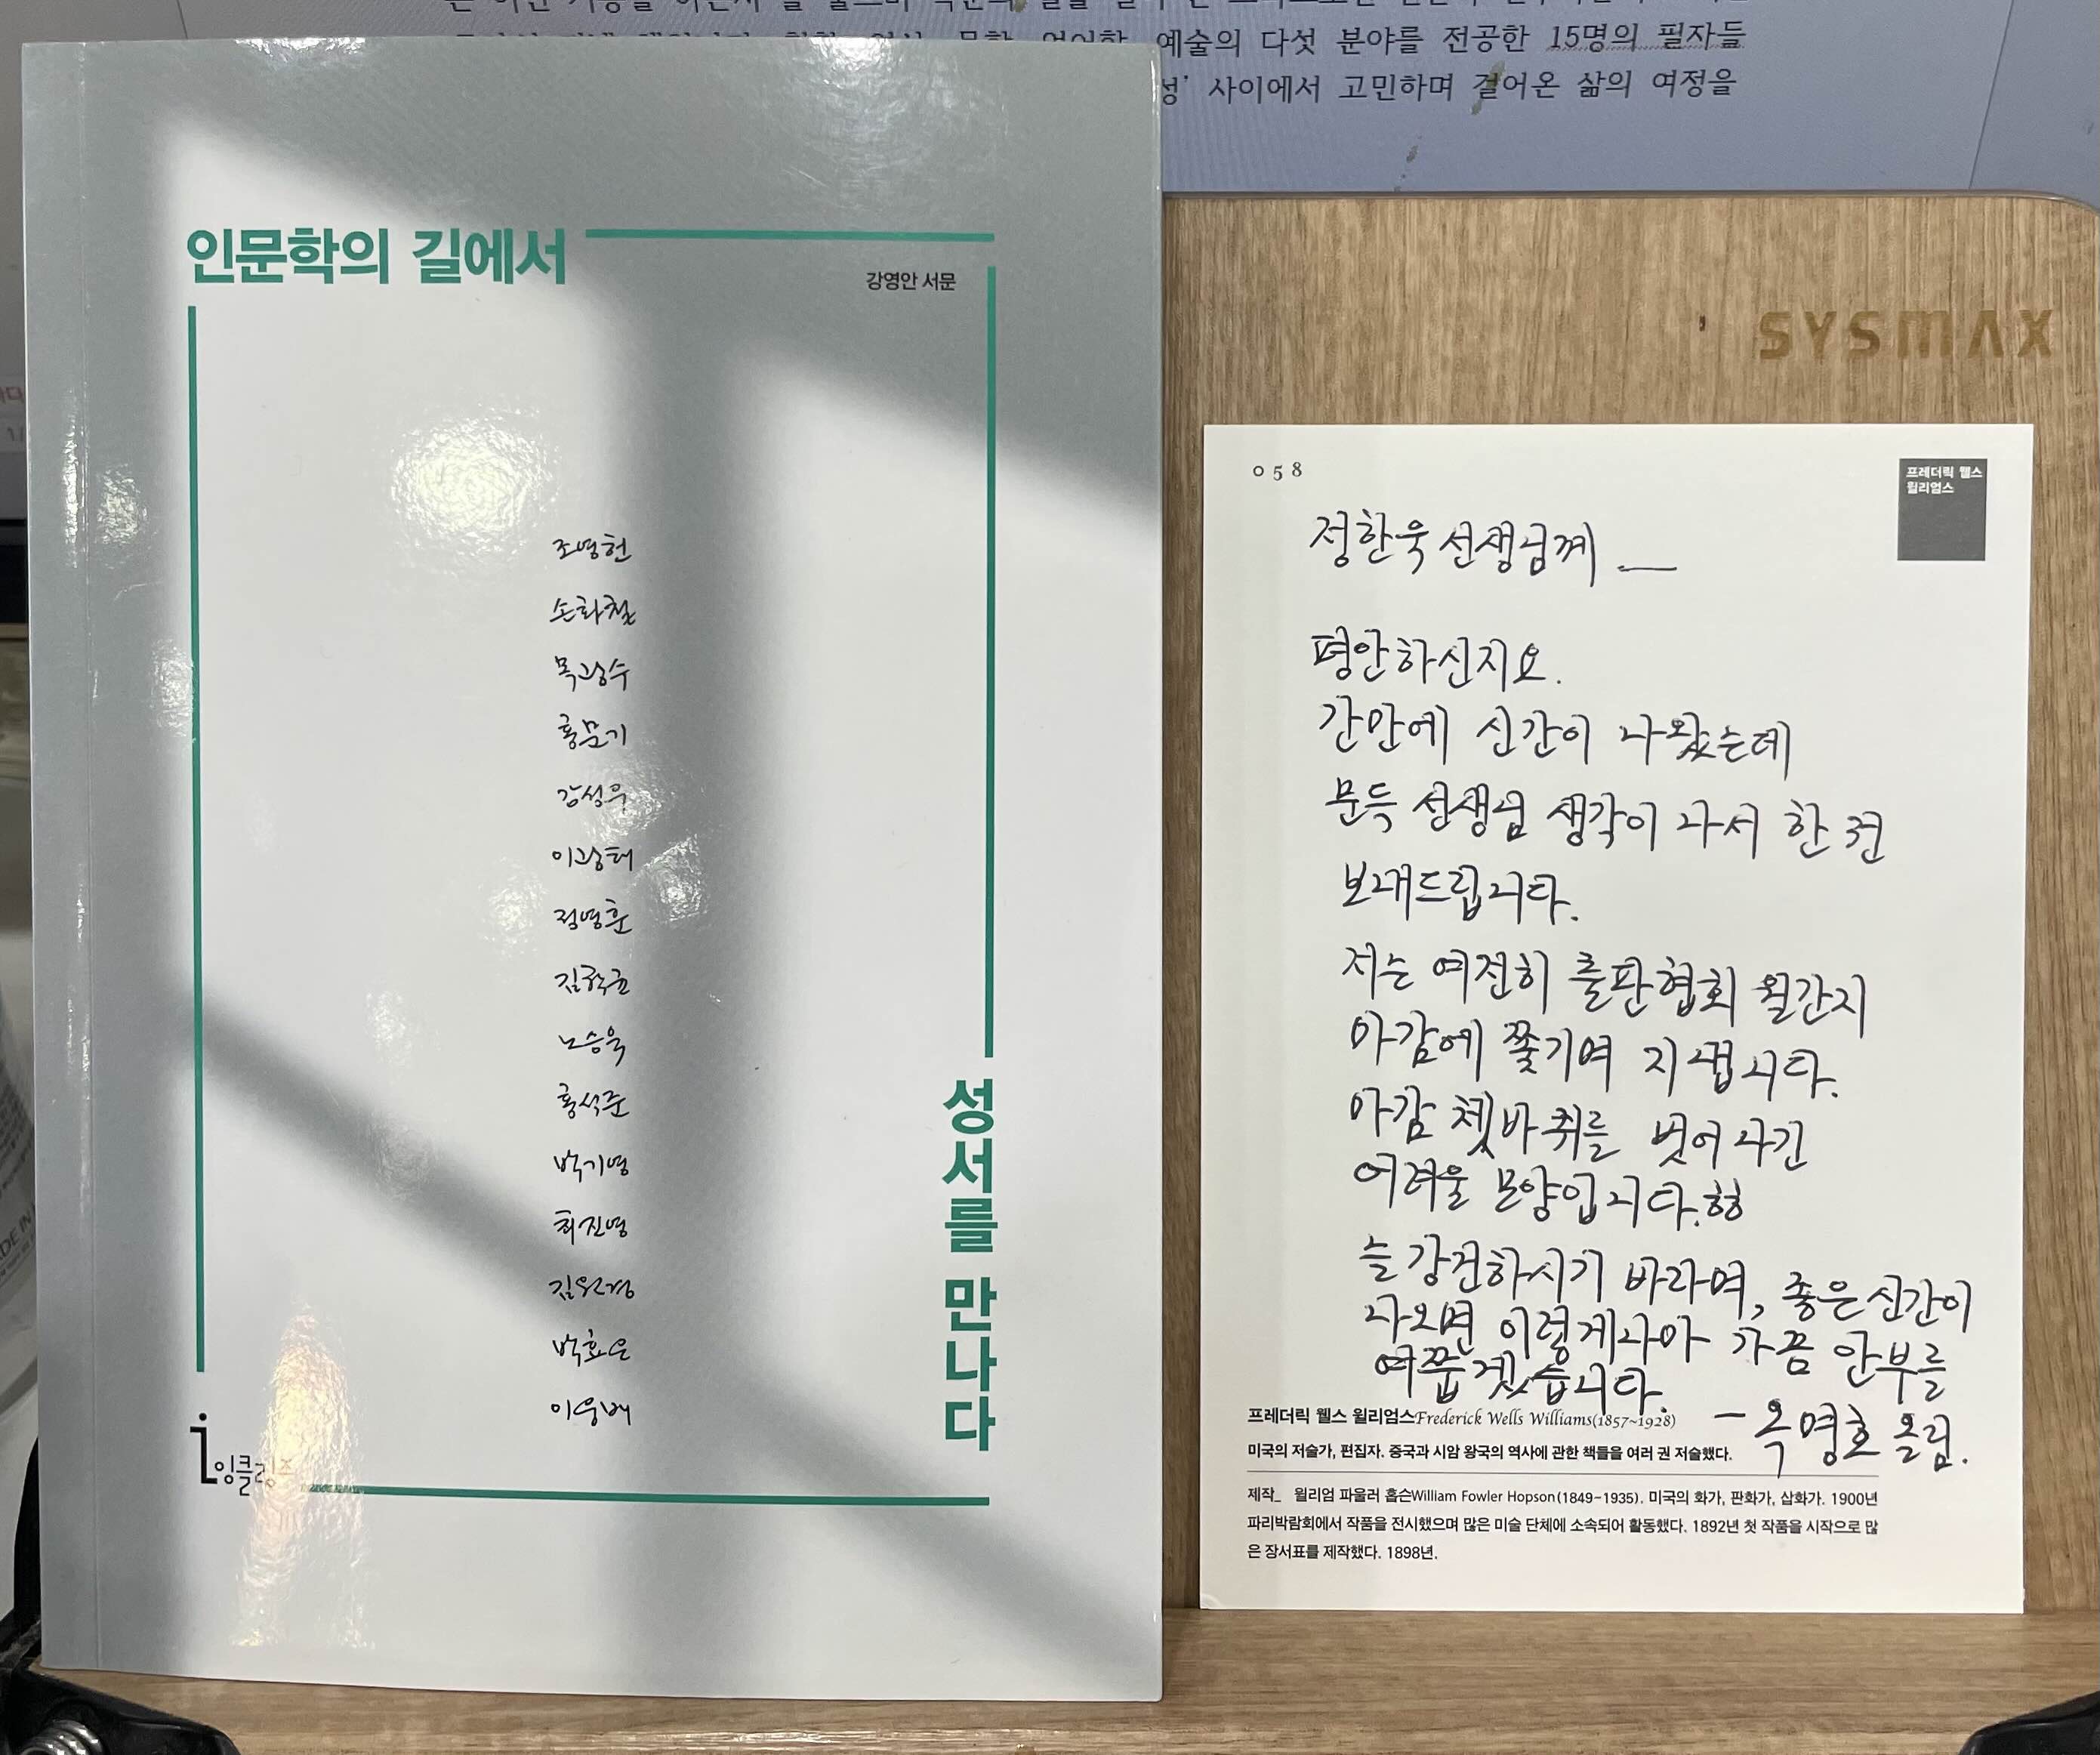 예술의 다섯 분야를 전공한 15명의 필자들
사이에서 고민하며 걸어온 삶의 여정을
인문학의 길에서
강영안 서문
조영헌
손화철
목광수
홍문기
강성우
이광태
정영훈
김학균
노승욱
홍석준
박기영
최진영
김원경
박효은
이웅배
성서를 만나다
잉클링즈
SYSMAX
058
프레더릭 웰스
윌리엄스
정한욱 선생님께 —
평안하신지요.
간만에 신간이 나왔는데
문득 선생님 생각이 나서 한 권
보내드립니다.
저는 여전히 출판협회 월간지
마감에 쫓기며 지냅니다.
마감 쳇바퀴를 벗어나긴
어려울 모양입니다.
늘 강건하시기 바라며, 좋은 신간이
나오면 이렇게나마 가끔 안부를
여쭙겠습니다.
— 옥명호 올림.
프레더릭 웰스 윌리엄스Frederick Wells Williams(1857~1928)
미국의 저술가, 편집자. 중국과 시암 왕국의 역사에 관한 책들을 여러 권 저술했다.
제작_ 윌리엄 파울러 홉슨William Fowler Hopson(1849-1935). 미국의 화가, 판화가, 삽화가. 1900년
파리박람회에서 작품을 전시했으며 많은 미술 단체에 소속되어 활동했다. 1892년 첫 작품을 시작으로 많
은 장서표를 제작했다. 1898년.